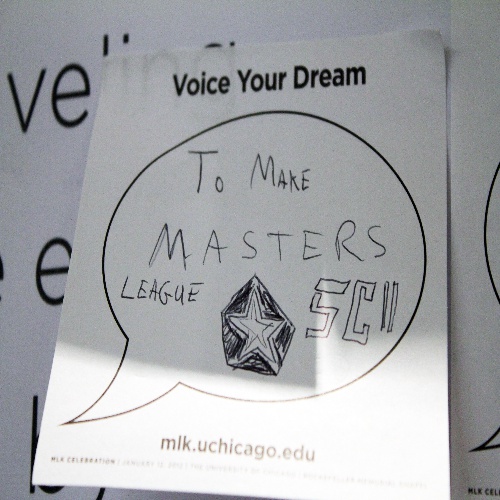 veling
Voice Your Dream
To Make
MASTERS
LEAGUE SCII
e e
mlk.uchicago.edu
MLK CELEBRATION | JANUARY 12, 2012 | THE UNIVERSITY OF CHICAGO | ROCKEFELLER MEMORIAL CHAPEL
by
MLK CEL